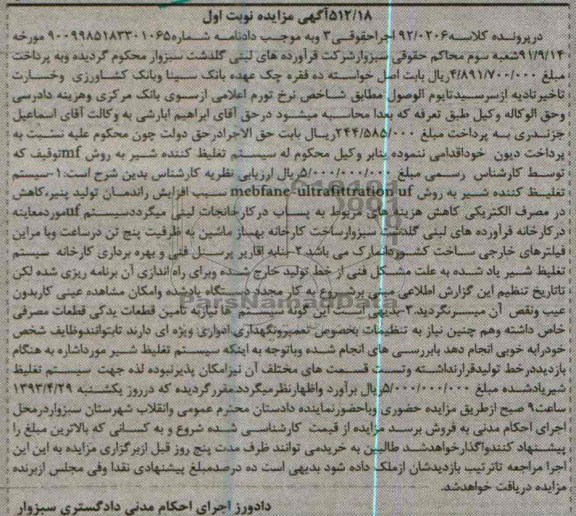 ۵۱۲/۱۸آگهی مزایده نوبت اول
درپرونده کلاسه۹۲/۰۲۰۶اجراحقوقی۳ وبه موجب دادنامه شماره۹۰۰۹۹۸۵۱۸۳۳۰۱۰۶۵ مورخه
۹۱/۹/۱۴شعبه سوم محاکم حقوقی سبزوارشرکت فرآورده های لبنی گلدشت سبزوار محکوم گردیده وبه پرداخت
مبلغ ۴/۸۹۱/۷۰۰/۰۰۰ریال بابت اصل خواسته ده فقره چک عهده بانک سینا وبانک کشاورزی وخسارت
تاخیرتادیه ازسررسیدتایوم الوصول مطابق شاخص نرخ تورم اعلامی ازسوی بانک مرکزی وهزینه دادرسی
وحق الوکاله وکیل طبق تعرفه که بعدا محاسبه میشود درحق آقای ابراهیم ابارشی به وکالت آقای اسماعیل
جزندری به پرداخت مبلغ ۲۴۴/۵۸۵/۰۰۰ریال بابت حق الاجرادرحق دولت چون محکوم علیه نسبت به
پرداخت دیون خوداقدامی ننموده بنابر وکیل محکوم له سیستم تغلیظ کننده شیر به روش mfتوقیف که
توسط کارشناس رسمی مبلغ ۵/۰۰۰/۰۰۰/۰۰۰ریال ارزیابی نظریه کارشناس بدین شرح است:۱-سیستم
تغلیظ کننده شیر به روش mebfane-ultrafittration uf سبب افزایش راندمان تولید پنیر،کاهش
در مصرف الکتریکی کاهش هزینه های مربوط به پساب درکارخانجات لبنی میگرددسیستم ufموردمعاینه
درکارخانه فرآورده های لبنی گلدشت سبزوارساخت کارخانه بهساز ماشین به ظرفیت پنج تن درساعت وبا مراین
فیلترهای خارجی ساخت کشوردانمارک می باشد.۲-بنابه اقاریر پرسنل فنی و بهره برداری کارخانه سیستم
تغلیظ شیر یاد شده به علت مشکل فنی از خط تولید خارج شده وبرای راه اندازی آن برنامه ریزی شده لکن
تاتاریخ تنظیم این گزارش اطلاعی مبنی برشروع به کار مجدد دستگاه یادشده وامکان مشاهده عینی کاربدون
عیب ونقص آن میسرنگردید.۳-بدیهی است این گونه سیستم ها نیازبه تامین قطعات یدکی قطعات مصرفی
خاص داشته وهم چنین نیاز به تنظیمات بخصوص تعمیرونگهداری ادواری ویژه ای دارند تابتوانندوظایف شخص
خودرابه خوبی انجام دهد بابررسی های انجام شده وباتوجه به اینکه سیستم تغلیظ شیر مورداشاره به هنگام
بازدیددرخط تولیدقرارنداشته وتست قسمت های مختلف آن نیزامکان پذیرنبوده لذه جهت سیستم تغلیظ
شیریادشده مبلغ ۵/۰۰۰/۰۰۰/۰۰۰ریال برآورد واظهارنظرمیگرددمقررگردیده که درروز یکشنبه ۱۳۹۳/۴/۲۹
ساعت۹ صبح ازطریق مزایده حضوری وباحضورنماینده دادستان محترم عمومی وانقلاب شهرستان سبزواردرمحل
اجرای احکام مدنی به فروش برسد مزایده از قیمت کارشناسی شده شروع و به کسانی که بالاترین مبلغ را
پیشنهاد کنندواگذارخواهدشد طالبین به خریدمی توانند ظرف مدت پنج روز قبل ازبرگزاری مزایده به این این
اجرا مراجعه تاترتیب بازدیدشان ازملک داده شود بدیهی است ده درصدمبلغ پیشنهادی نقدا وفی مجلس ازبرنده
مزایده دریافت خواهدشد.
دادورز اجرای احکام مدنی دادگستری سبزوار
ParsNamadData